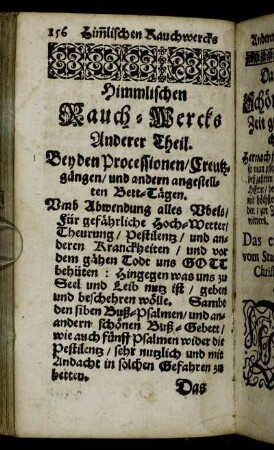 156 Him̃lischen Rauchwercks
Himmlischen
Rauch-Wercks
Anderer Theil.
Bey den Processionen/Creutz-
gängen/und andern angestell-
ten Bett-Tägen.
Umb Abwendung alles Ubels/
Für gefährliche Hoch-Wetter/
Theurung/ Pestilentz/ und an-
deren Kranckheiten/ und vor
dem gähen Todt uns GOTT
behüten: Hingegen was uns zu
Seel und Leib nutz ist/ geben
und beschehren wölle. Sambt
den siben Buß-Psalmen/ und an-
andern schönen Buß-Gebett/
wie auch fünff Psalmen wider die
Pestilentz/ sehr nutzlich und mit
Andacht in solchen Gefahren zu
betten.
Das